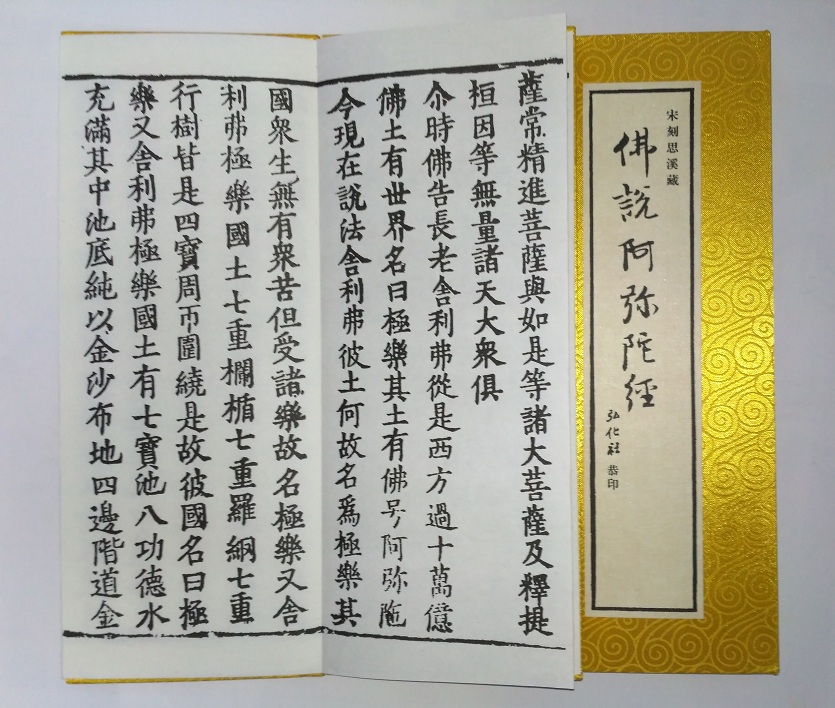 宋刻思溪藏
佛說阿弥陀經
弘化社 恭印
薩常精進菩薩與如是等諸大菩薩及釋提
桓因等無量諸天大衆俱
尒時佛告長老舎利弗從是西方過十萬億
佛土有世界名曰極樂其土有佛号阿弥陁
今現在說法舎利弗彼土何故名爲極樂其
國衆生無有衆苦但受諸樂故名極樂又舎
利弗極樂國土七重欄楯七重羅網七重
行樹皆是四寶周帀圍繞是故彼國名曰極
樂又舎利弗極樂國土有七寶池八功德水
充滿其中池底純以金沙布地四邊階道金